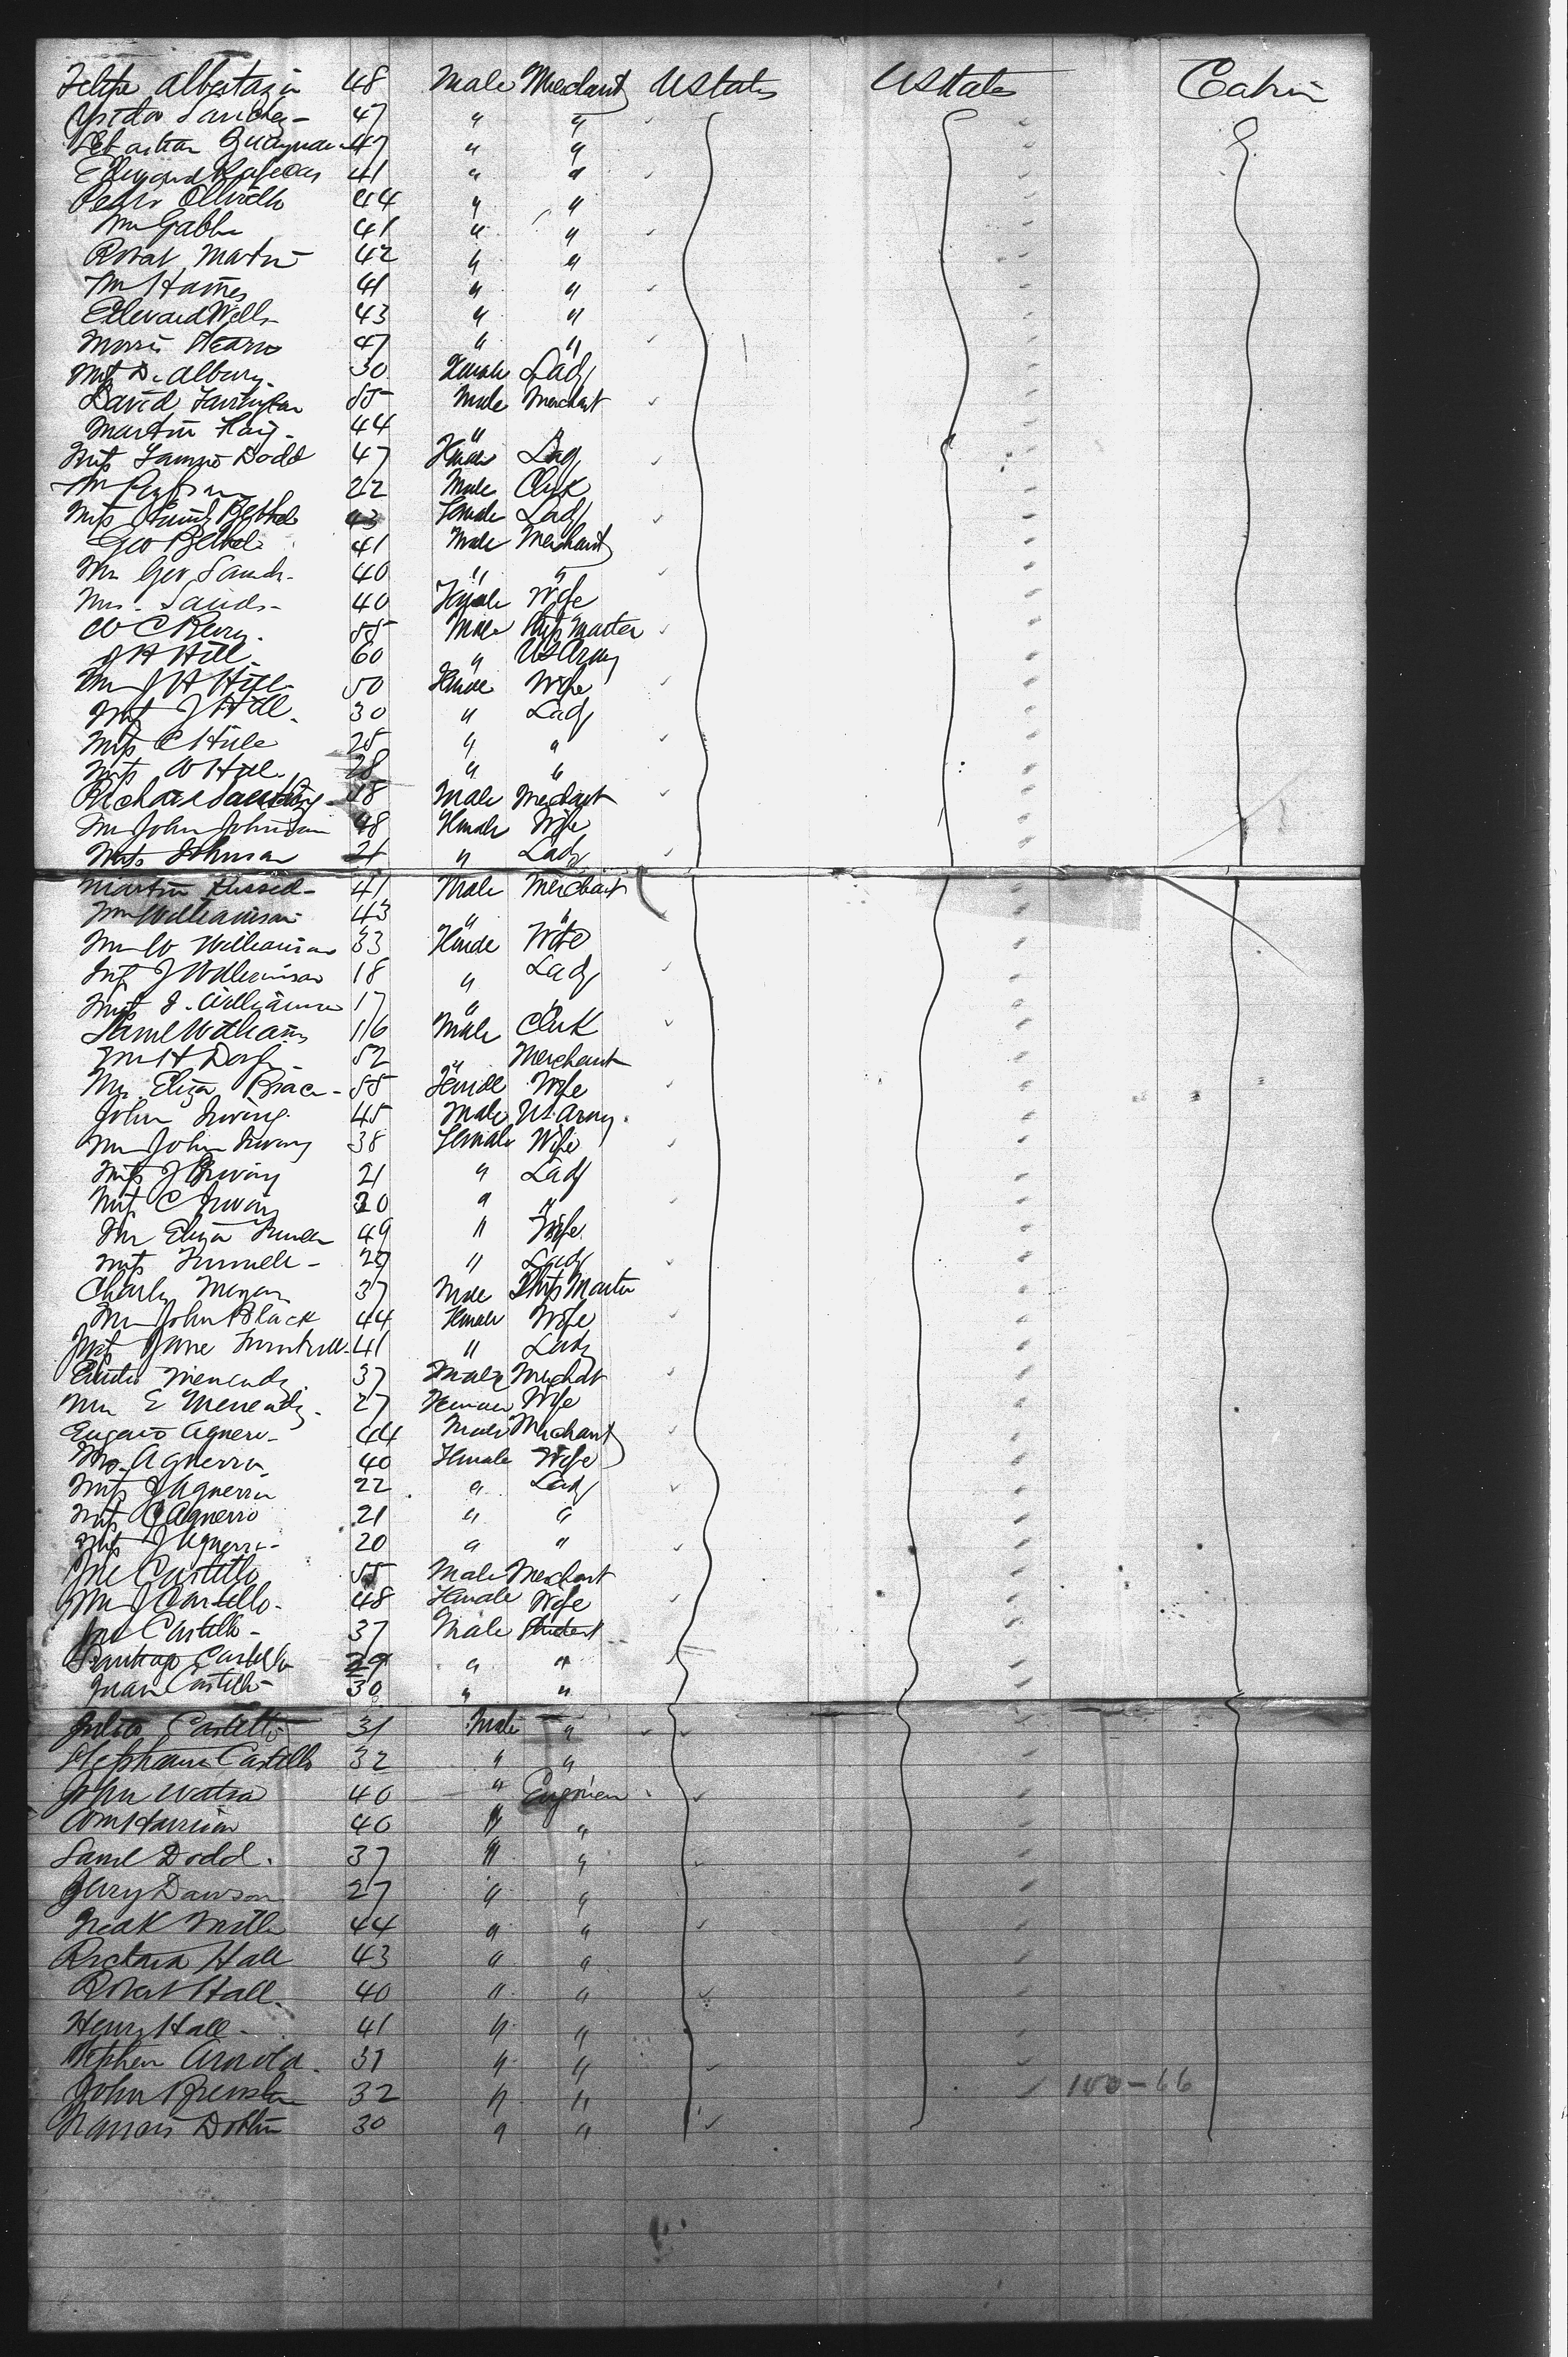 Felipe Albertazin 48 Male Merchant UStates UStates Cabin
Ysidor Sanchez 47 " "
Sebastian 47 " "
Edward 41 " "
Pedro 44 " "
Wm Gabbe 41 " "
Robat Martin 42 " "
Wm Haines 41 " "
Edward Wells 43 " "
Morris Stearns 47 " "
Miss D. Albury 30 Female Lady
David Farrington 55 Male Merchant
Martin Haig 44 " "
Miss Fannie Dodd 47 Female Lady
Wm 22 Male Clerk
Miss Bethel 43 Female Lady
Geo Bethel 41 Male Merchant
Mr Geo Sands 40 " "
Mrs. Sands 40 Female Wife
W C Perry. 55 Male Ships Master
J H Hill 60 " US Army
Mrs J H Hill 50 Female Wife
Miss J Hill. 30 " Lady
Miss C Hill 25 " "
Miss W Hill 28 " "
Richard 48 Male Merchant
Mrs John Johnson 48 Female Wife
Miss Johnson 21 " Lady
Martin Russed 41 Male Merchant
Wm Williamson 43 " "
Mrs W Williamson 33 Female Wife
Miss J Williamson 18 " Lady
Miss J. Williamson 17 " "
Saml Williams 16 Male Clerk
Wm H Day 52 " Merchant
Mrs. Eliza 55 Female Wife
John Irving 45 Male US Army.
Mrs John Irving 38 Female Wife
Miss J Irving 21 " Lady
Miss C Irving 20 " "
Mrs Eliza 49 " Wife
Miss 29 " Lady
Charles Morgan 37 Male Ships Master
Mrs John Black 44 Female Wife
Miss Jane 41 " Lady
Menendz 37 Male Merchat
Mrs E Menendz. 27 Female Wife
Eugenio Aguero 44 Male Merchant
Mrs. Aguerro 40 Female Wife
Miss J Aguerro 22 " Lady
Miss C Aguerro 21 " "
Miss J Aguerro 20 " "
Jne Castillo 55 Male Merchant
Mrs J Castello. 48 Female Wife
Jne Castello 37 Male Student
Santiago Castello 29 " "
Juan Castello 30 " "
Julio Castello 31 Male "
Stephanie Castello 32 " "
John Watson 40 " Engineer
Wm Harrison 40 " "
Saml Dodd. 37 " "
Jerry Dawson 27 " "
Miller 44 " "
Richard Hall 43 " "
Robert Hall. 40 " "
Henry Hall 41 " "
Stephen Arnold. 31 " "
John Brewster 32 " " 100-66
Francis Dobbin 30 " "